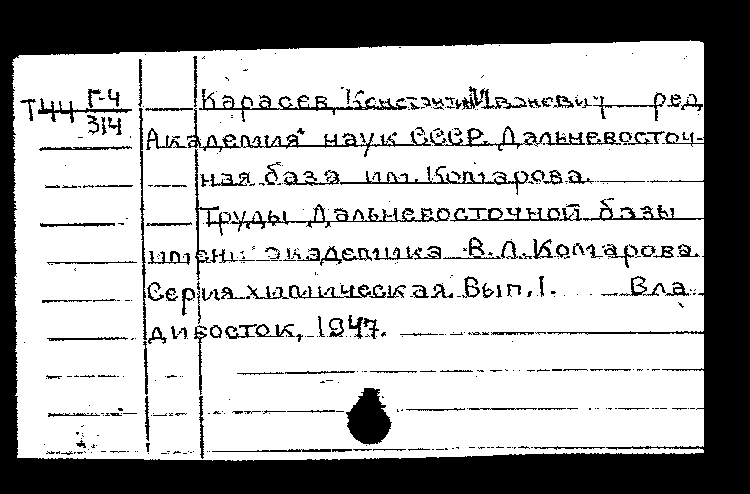 Т44 Г-4 Карасев, Константин Иванович ред.
314
Академия наук СССР. Дальневосточ-
ная база им. Комарова.
Труды Дальневосточной базы
имени академика В.Л. Комарова.
Серия химическая. Вып. I. Вла
дивосток, 1947.